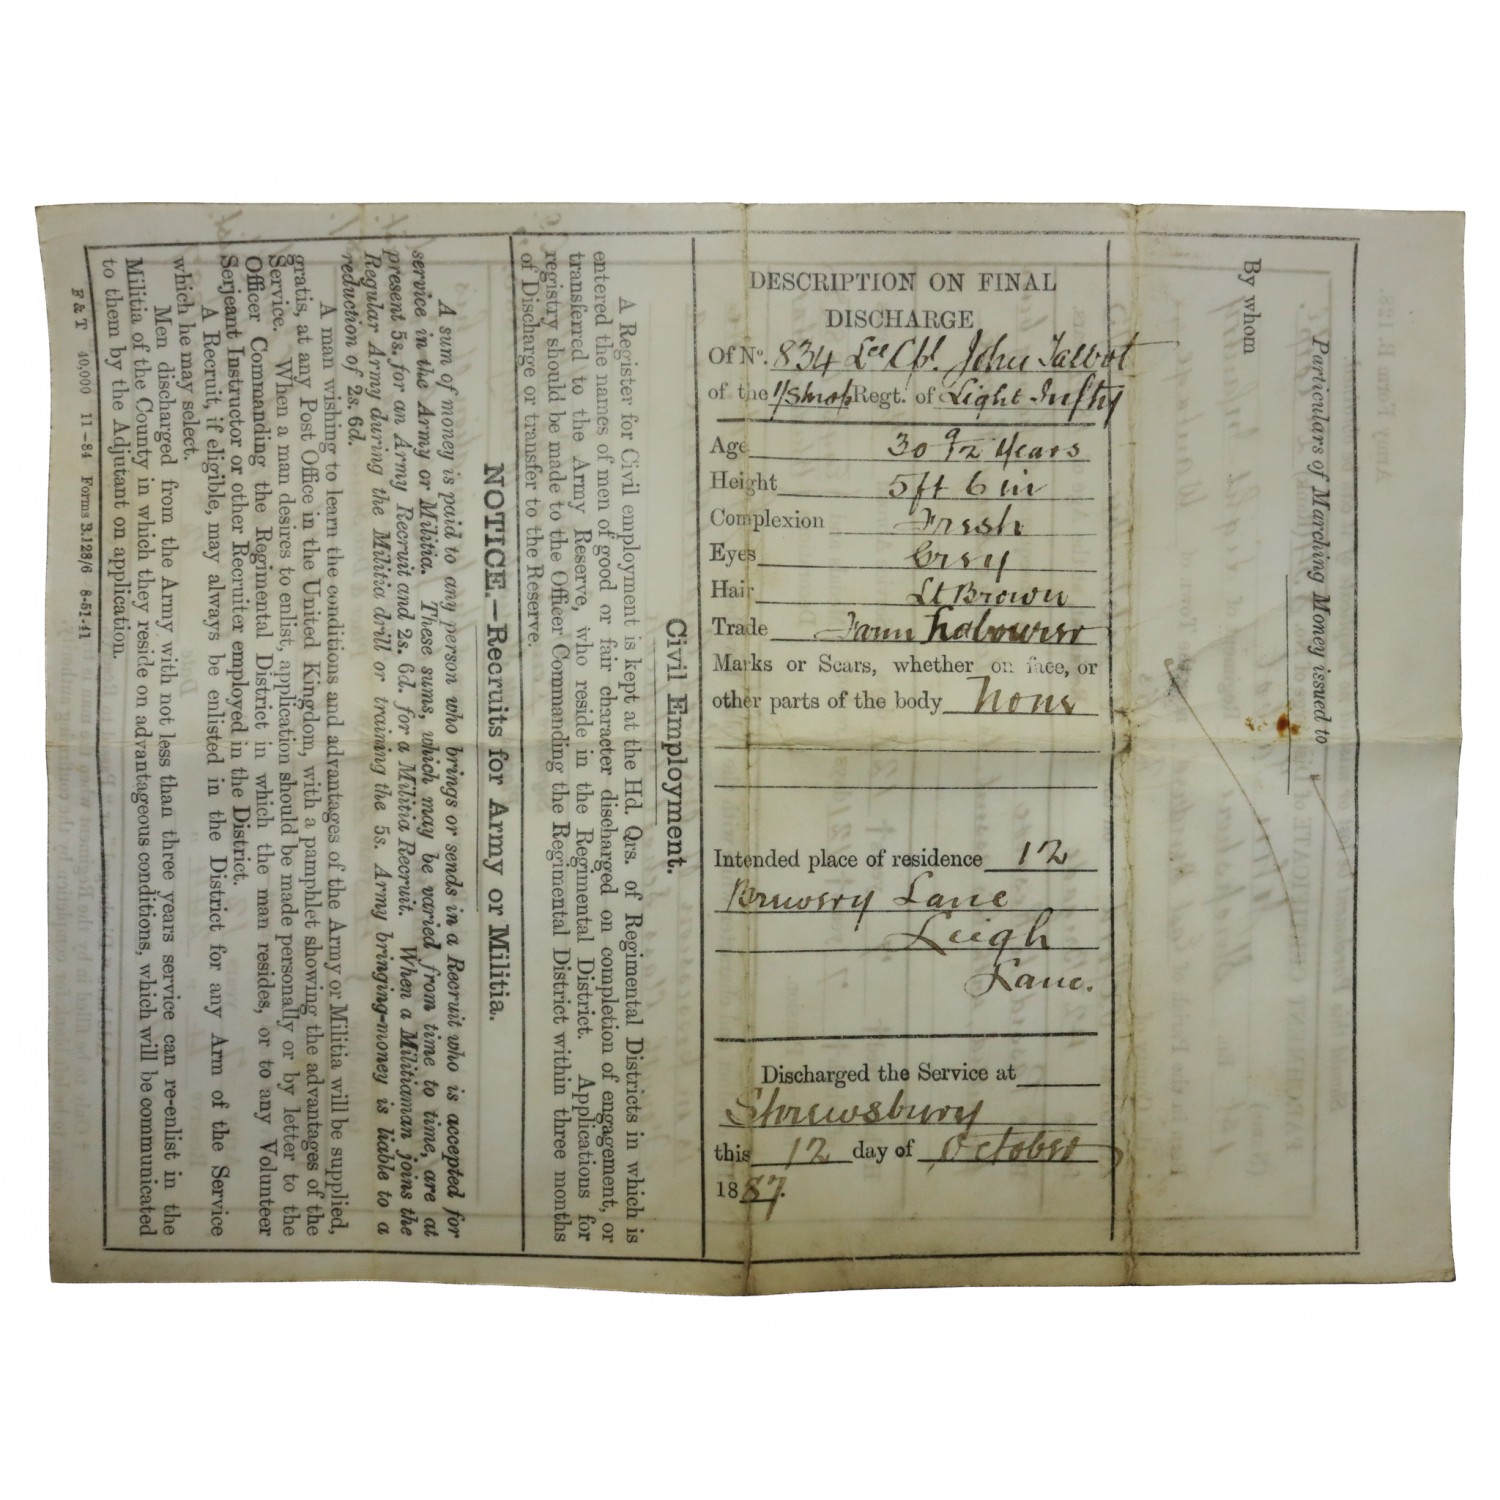 DESCRIPTION ON FINAL
DISCHARGE
Of No. 834 Lce Cpl. John Talbot
of the 1/Shrop Regt. of Light Infty
Age 30 9/12 Years
Height 5ft 6 in
Complexion Fresh
Eyes Grey
Hair Lt Brown
Trade Farm Labourer
Marks or Scars, whether on face, or
other parts of the body None
Intended place of residence 12
Brewery Lane
Leigh
Lanc.
Discharged the Service at
Shrewsbury
this 12 day of October
1887.
Particulars of Marching Money issued to
By whom
Civil Employment.
A Register for Civil employment is kept at the Hd. Qrs. of Regimental Districts in which is
entered the names of men of good or fair character discharged on completion of engagement, or
transferred to the Army Reserve, who reside in the Regimental District. Applications for
registry should be made to the Officer Commanding the Regimental District within three months
of Discharge or transfer to the Reserve.
NOTICE.—Recruits for Army or Militia.
A sum of money is paid to any person who brings or sends in a Recruit who is accepted for
service in the Army or Militia. These sums, which may be varied from time to time, are at
present 5s. for an Army Recruit and 2s. 6d. for a Militia Recruit. When a Militiaman joins the
Regular Army during the Militia drill or training the 5s. Army bringing-money is liable to a
reduction of 2s. 6d.
A man wishing to learn the conditions and advantages of the Army or Militia will be supplied,
gratis, at any Post Office in the United Kingdom, with a pamphlet showing the advantages of the
Service. When a man desires to enlist, application should be made personally or by letter to the
Officer Commanding the Regimental District in which the man resides, or to any Volunteer
Serjeant Instructor or other Recruiter employed in the District.
A Recruit, if eligible, may always be enlisted in the District for any Arm of the Service
which he may select.
Men discharged from the Army with not less than three years service can re-enlist in the
Militia of the County in which they reside on advantageous conditions, which will be communicated
to them by the Adjutant on application.
F & T 40,000 11—84 Forms B.128/6 8-51-41